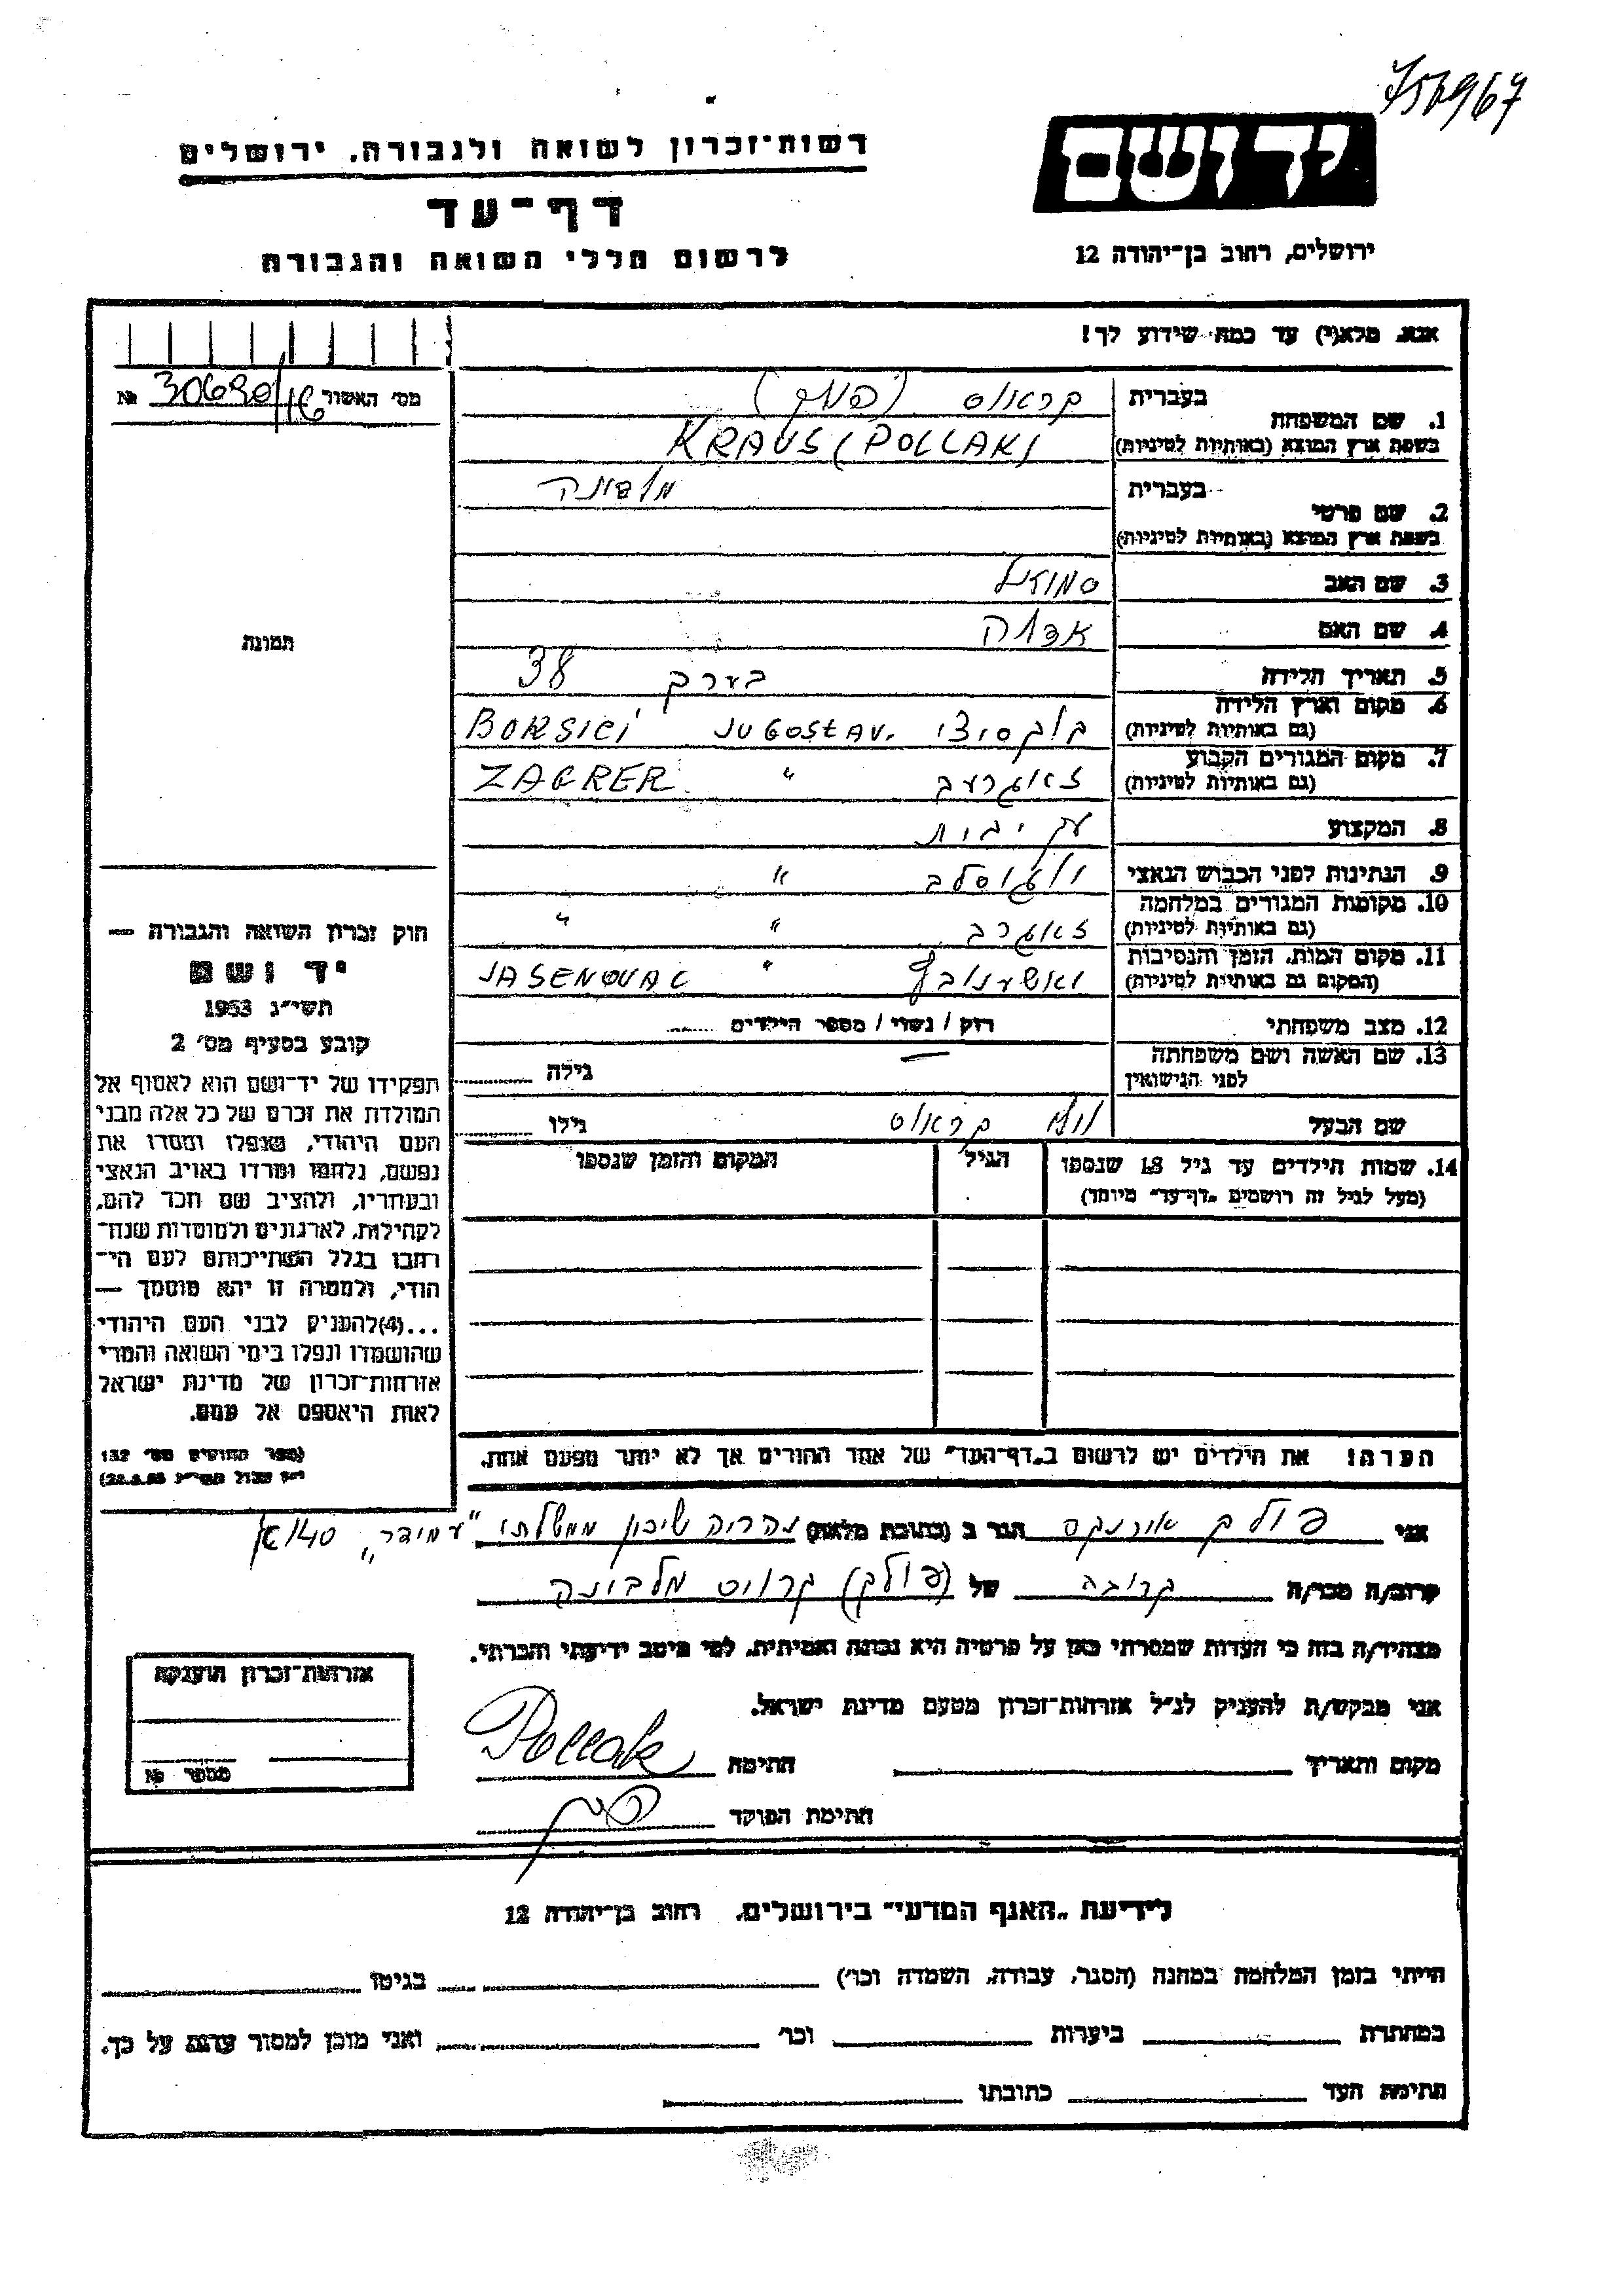 רשות־זכרון לשואה ולגבורה, ירושלים
דף־עד
לרשום חללי השואה והגבורה
יד ושם
ירושלים, רחוב בן־יהודה 12
אנא, מלא(י) עד כמה שידוע לך!
מס׳ האשור № 30690
1. שם המשפחה
בעברית
קראוס (פולק)
בשפת ארץ המוצא (באותיות לטיניות)
KRAUS (POLLAK)
2. שם פרטי
בעברית
מלבינה
בשפת ארץ המוצא (באותיות לטיניות)
3. שם האב
סמואל
4. שם האם
5. תאריך הלידה
בערך 38
6. מקום וארץ הלידה
(גם באותיות לטיניות)
JUGOSLAV. BORSICI
7. מקום המגורים הקבוע
(גם באותיות לטיניות)
זאגרעב " ZAGREB
8. המקצוע
עק. בית
9. הנתינות לפני הכבוש הנאצי
יוגוסלב "
10. מקומות המגורים במלחמה
(גם באותיות לטיניות)
זאגרב " "
11. מקום המות, הזמן והנסיבות
(המקום גם באותיות לטיניות)
" JASENOVAC
12. מצב משפחתי
רוק / נשוי / מספר הילדים
13. שם האשה ושם משפחתה
לפני הנישואין
גילה
שם הבעל
קראוס
גילו
14. שמות הילדים עד גיל 18 שנספו
(מעל לגיל זה רושמים „דף־עד” מיוחד)
הגיל
המקום והזמן שנספו
תמונה
חוק זכרון השואה והגבורה —
יד ושם
תשי״ג 1953
קובע בסעיף מס׳ 2
תפקידו של יד־ושם הוא לאסוף אל
המולדת את זכרם של כל אלה מבני
העם היהודי, שנפלו ומסרו את
נפשם, נלחמו ומרדו באויב הנאצי
ובעוזריו, ולהציב שם וזכר להם,
לקהילות, לארגונים ולמוסדות שנח־
רבו בגלל השתייכותם לעם הי־
הודי, ולמטרה זו יהא מוסמך —
...(4) להעניק לבני העם היהודי
שהושמדו ונפלו בימי השואה והמרי
אזרחות־זכרון של מדינת ישראל
לאות היאספם אל עמם.
(ספר החוקים מס׳ 132
הערה! את הילדים יש לרשום ב„דף־העד” של אחד ההורים אך לא יותר מפעם אחת.
אני פולק הגר ב (כתובת מלאה) נהריה שיכון ממשלתי „עמידר” 140
קרוב/ה מכר/ה קרובה של (פולק) קרויס מלבינה
מצהיר/ה בזה כי העדות שמסרתי כאן על פרטיה היא נכונה ואמיתית, לפי מיטב ידיעתי והכרתי.
אני מבקש/ת להעניק לנ״ל אזרחות־זכרון מטעם מדינת ישראל.
מקום ותאריך
חתימה Pollak
חתימת הפוקד
אזרחות־זכרון הוענקה
מספר №
לידיעת „האגף המדעי” בירושלים, רחוב בן־יהודה 12
הייתי בזמן המלחמה במחנה (הסגר, עבודה, השמדה וכו׳) בגיטו
במחתרת ביערות וכו׳ ואני מוכן למסור עדות על כך.
חתימת העד כתובתו